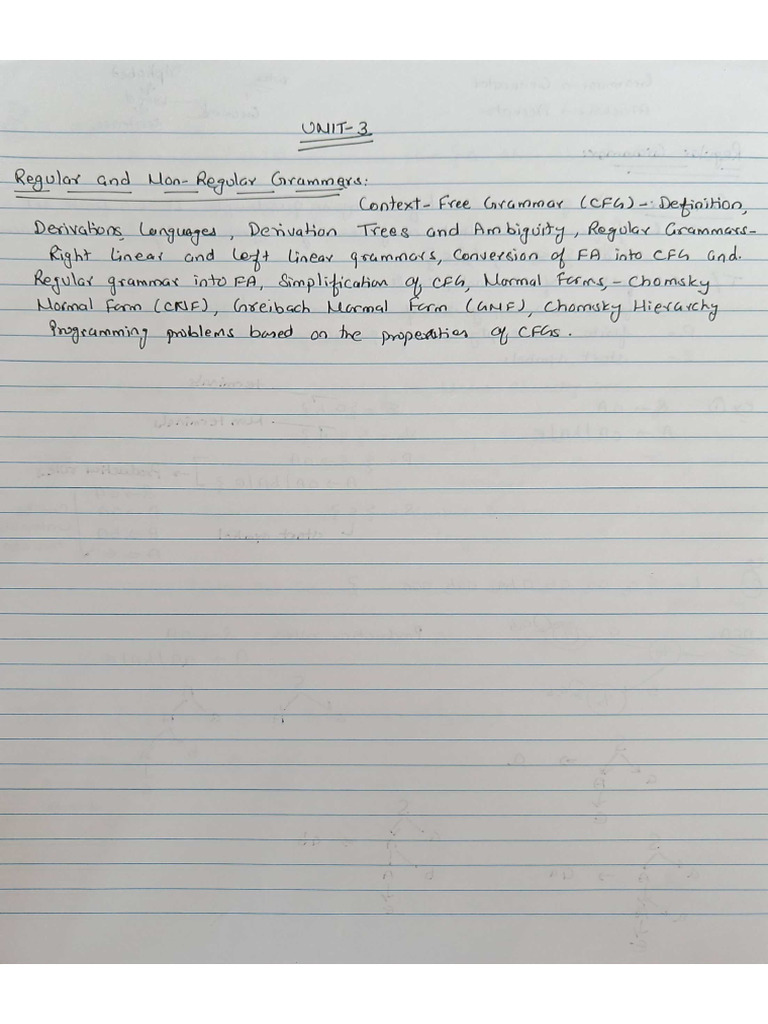 UNIT-3
Regular and Non-Regular Grammers:
Context-Free Grammar (CFG) - Definition,
Derivations, Languages, Derivation Trees and Ambiguity, Regular Grammars-
Right Linear and Left linear grammars, Conversion of FA into CFG and.
Regular grammar into FA, Simplification of CFG, Normal Forms, - Chomsky
Normal Form (CNF), Greibach Normal Form (GNF), Chomsky Hierarchy
Programming problems based on the properties of CFGs.